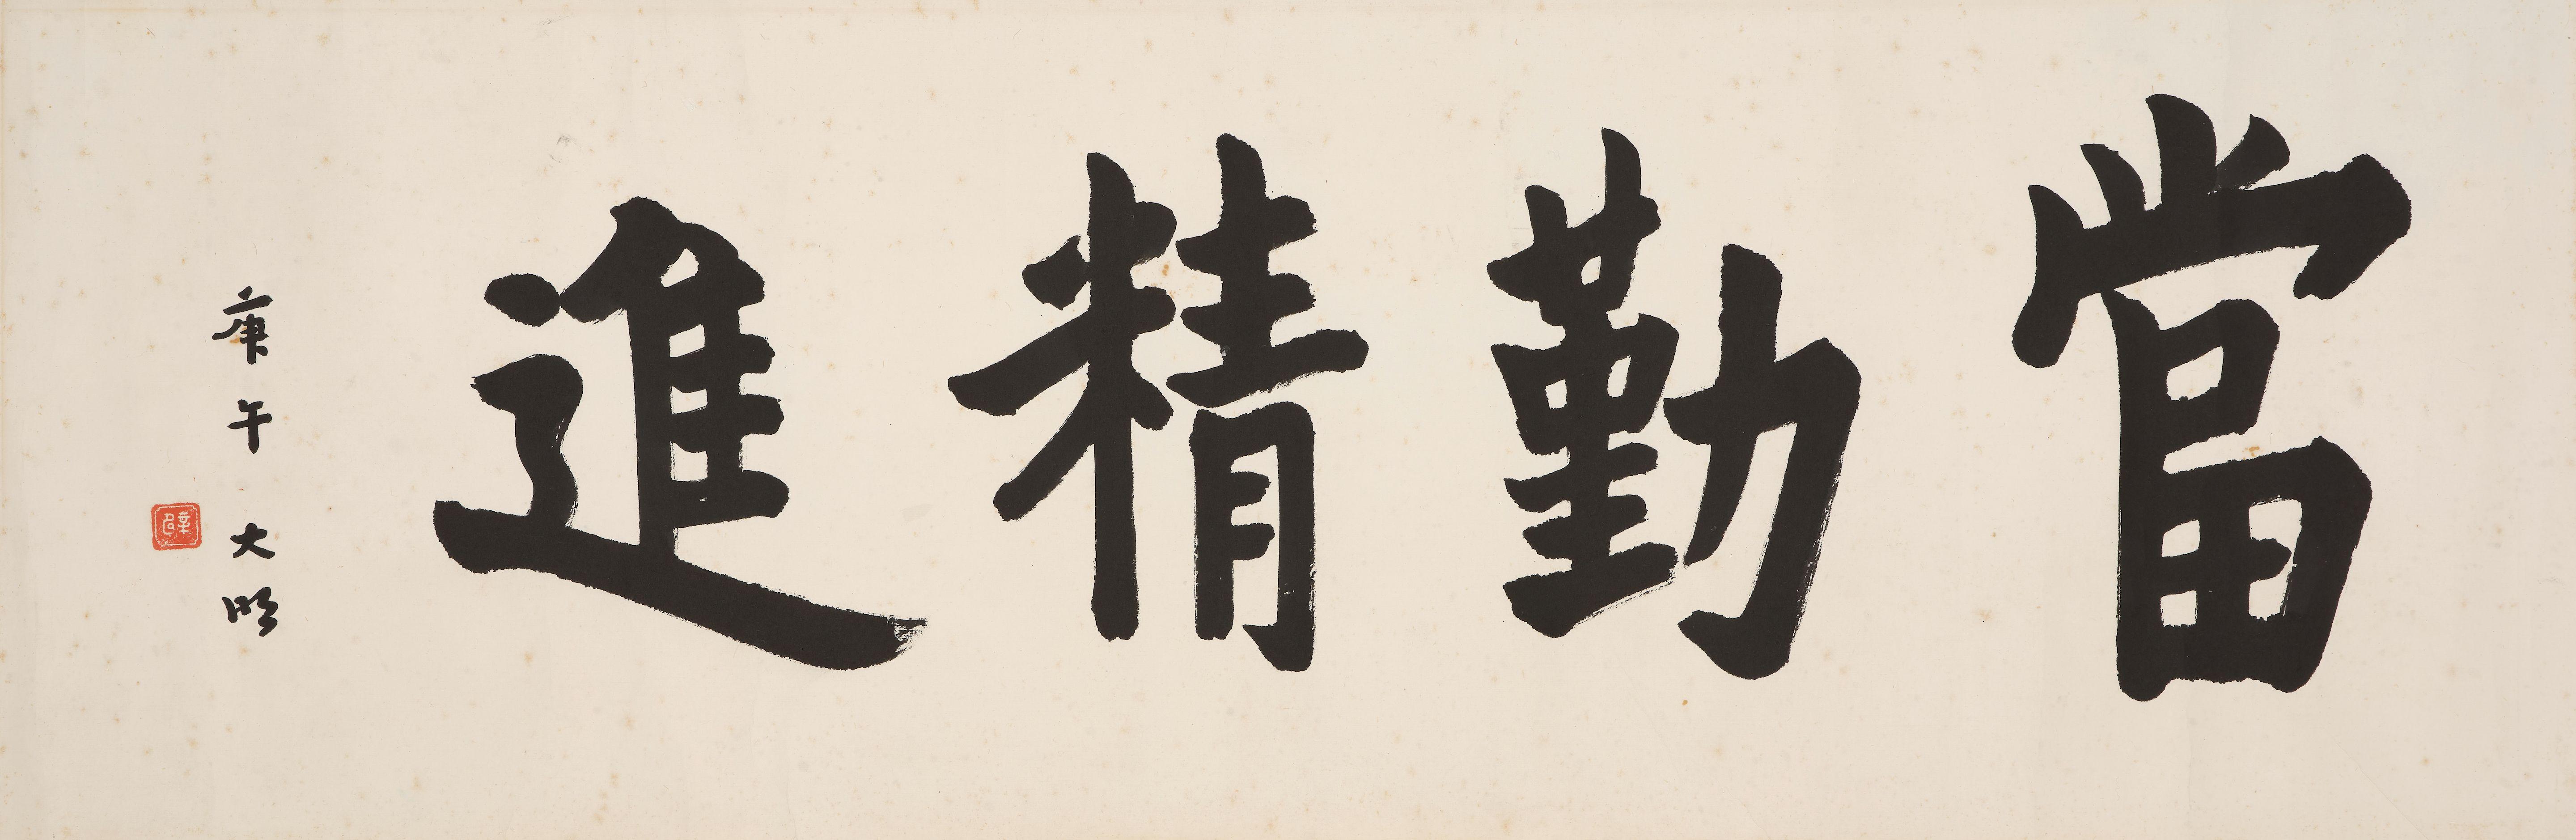 當勤精進
庚午 大明